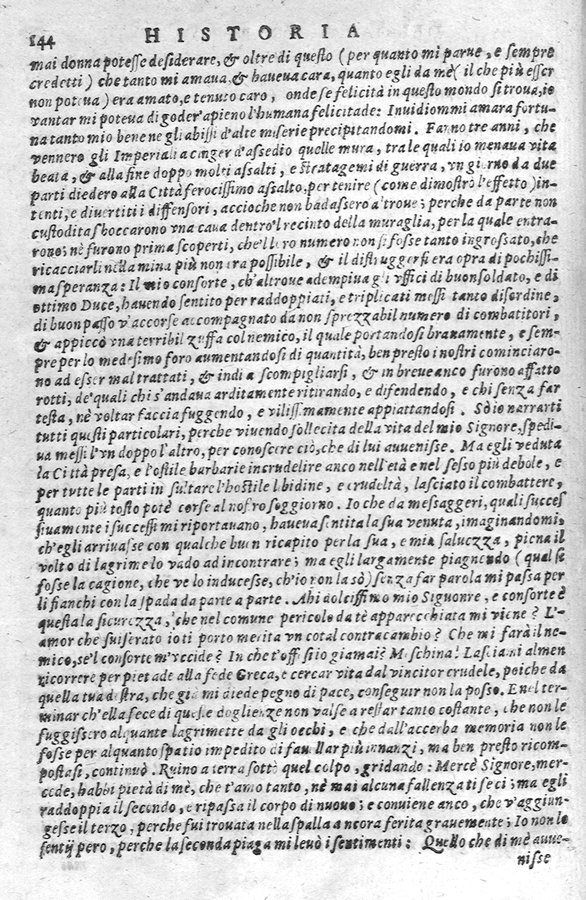 144 HISTORIA
mai donna potesse desiderare, & oltre di questo (per quanto mi parue, e sempre
credetti) che tanto mi amaua, & haueua cara, quanto egli da mè (il che più esser
non poteua) era amato, e tenuto caro, onde se felicità in questo mondo si troua, io
vantar mi poteua di goder' apieno l'humana felicitade: Inuidiommi amara fortu-
na tanto mio bene ne gli abissi d'alte miserie precipitandomi. Fanno tre anni, che
vennero gli Imperiali a cinger d'assedio quelle mura, tra le quali io menaua vita
beata, & alla fine doppo molti assalti, e stratagemi di guerra, vn giorno da due
parti diedero alla Città ferocissimo assalto, per tenire (come dimostrò l'effetto) in-
tenti, e diuertiti i diffensori, accioche non badassero a'troue; perche da parte non
custodita sboccarono vna caua dentro'l recinto della muraglia, per la quale entra-
rono; nè furono prima scoperti, che'l loro numero non si fosse tanto ingrossato, che
ricacciarli nella mina più non era possibile, & il distruggersi era opra di pochissi-
ma speranza: Il mio consorte, ch'altroue adempiua gli vffici di buon soldato, e di
ottimo Duce, hauendo sentito per raddoppiati, e triplicati messi tanto disordine,
di buon passo v'accorse accompagnato da non sprezzabil numero di combatitori,
& appiccò vna terribil zuffa col nemico, il quale portandosi brauamente, e sem-
pre per lo medesimo foro aumentandosi di quantità, ben presto i nostri cominciaro-
no ad esser mal trattati, & indi a scompigliarsi, & in breue anco furono affatto
rotti, de'quali chi s'andaua arditamente ritirando, e difendendo, e chi senza far
testa, nè voltar faccia fuggendo, e viliss.mamente appiattandosi. Sò io narrarti
tutti questi particolari, perche viuendo sollecita della vita del mio Signore, spedi-
ua messi l'vn doppo l'altro, per conoscere ciò, che di lui auuenisse. Ma egli veduta
la Città presa, e l'ostile barbarie incrudelire anco nell'età e nel sesso più debole, e
per tutte le parti insultare l'hostile libidine, e crudeltà, lasciato il combattere,
quanto più tosto potè corse al nostro soggiorno. Io che da messaggeri, quali succes
siuamente i successi mi riportauano, haueua sentita la sua venuta, imaginandomi,
ch'egli arriuasse con qualche buon ricapito per la sua, e mia saluezza, piena il
volto di lagrime lo vado ad incontrare; ma egli largamente piagnendo (qual si
fosse la cagione, che ve lo inducesse, ch'io non la sò) senza far parola mi passa per
li fianchi con la spada da parte a parte. Ahi dolcissimo mio Siguonre, e consorte è
questa la sicurezza, che nel comune pericolo da tè apparecchiata mi viene? L'
amor che suiserato io ti porto merita vn cotal contracambio? Che mi farà il ne-
mico, se'l consorte m'vccide? In che t'offesi io giamai? Meschina! Lasciami almen
ricorrere per pietade alla fede Greca, e cercar vita dal vincitor crudele, poiche da
quella tua destra, che già mi diede pegno di pace, conseguir non la posso. E nel ter-
minar ch'ella fece di queste doglienze non valse a restar tanto costante, che non le
fuggissero alquante lagrimette da gli occhi, e che dall'accerba memoria non le
fosse per alquanto spatio impedito di fauellar più innanzi, ma ben presto ricom-
postasi, continuò. Ruino a terra sotto quel colpo, gridando: Mercè Signore, mer-
cede, habbi pietà di mè, che t'amo tanto, nè mai alcuna fallenza ti feci; ma egli
raddoppia il secondo, e ripassa il corpo di nuouo; e conuiene anco, che v'aggiun-
gesse il terzo, perche fui trouata nella spalla ancora ferita grauemente; Io non lo
sentij pero, perche la seconda piaga mi leuò i sentimenti: Quello che di mè auue-
nisse